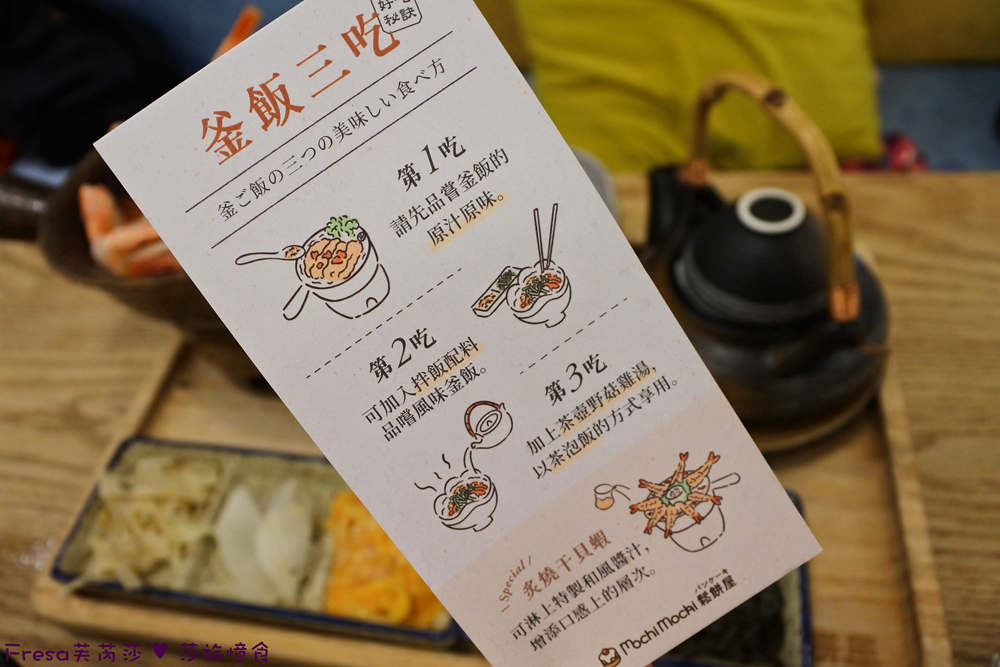 好吃
秘訣
釜飯三吃
釜ご飯の三つの美味しい食べ方
第1吃
請先品嘗釜飯的
原汁原味。
第2吃
可加入拌飯配料
品嚐風味釜飯。
第3吃
加上茶壺野菇雞湯,
以茶泡飯的方式享用。
Special
炙燒干貝蝦
可淋上特製和風醬汁,
增添口感上的層次。
MochiMochi
パンケーキ
鬆餅屋
Fresa芙芮莎 ♥ 莎旅憶食